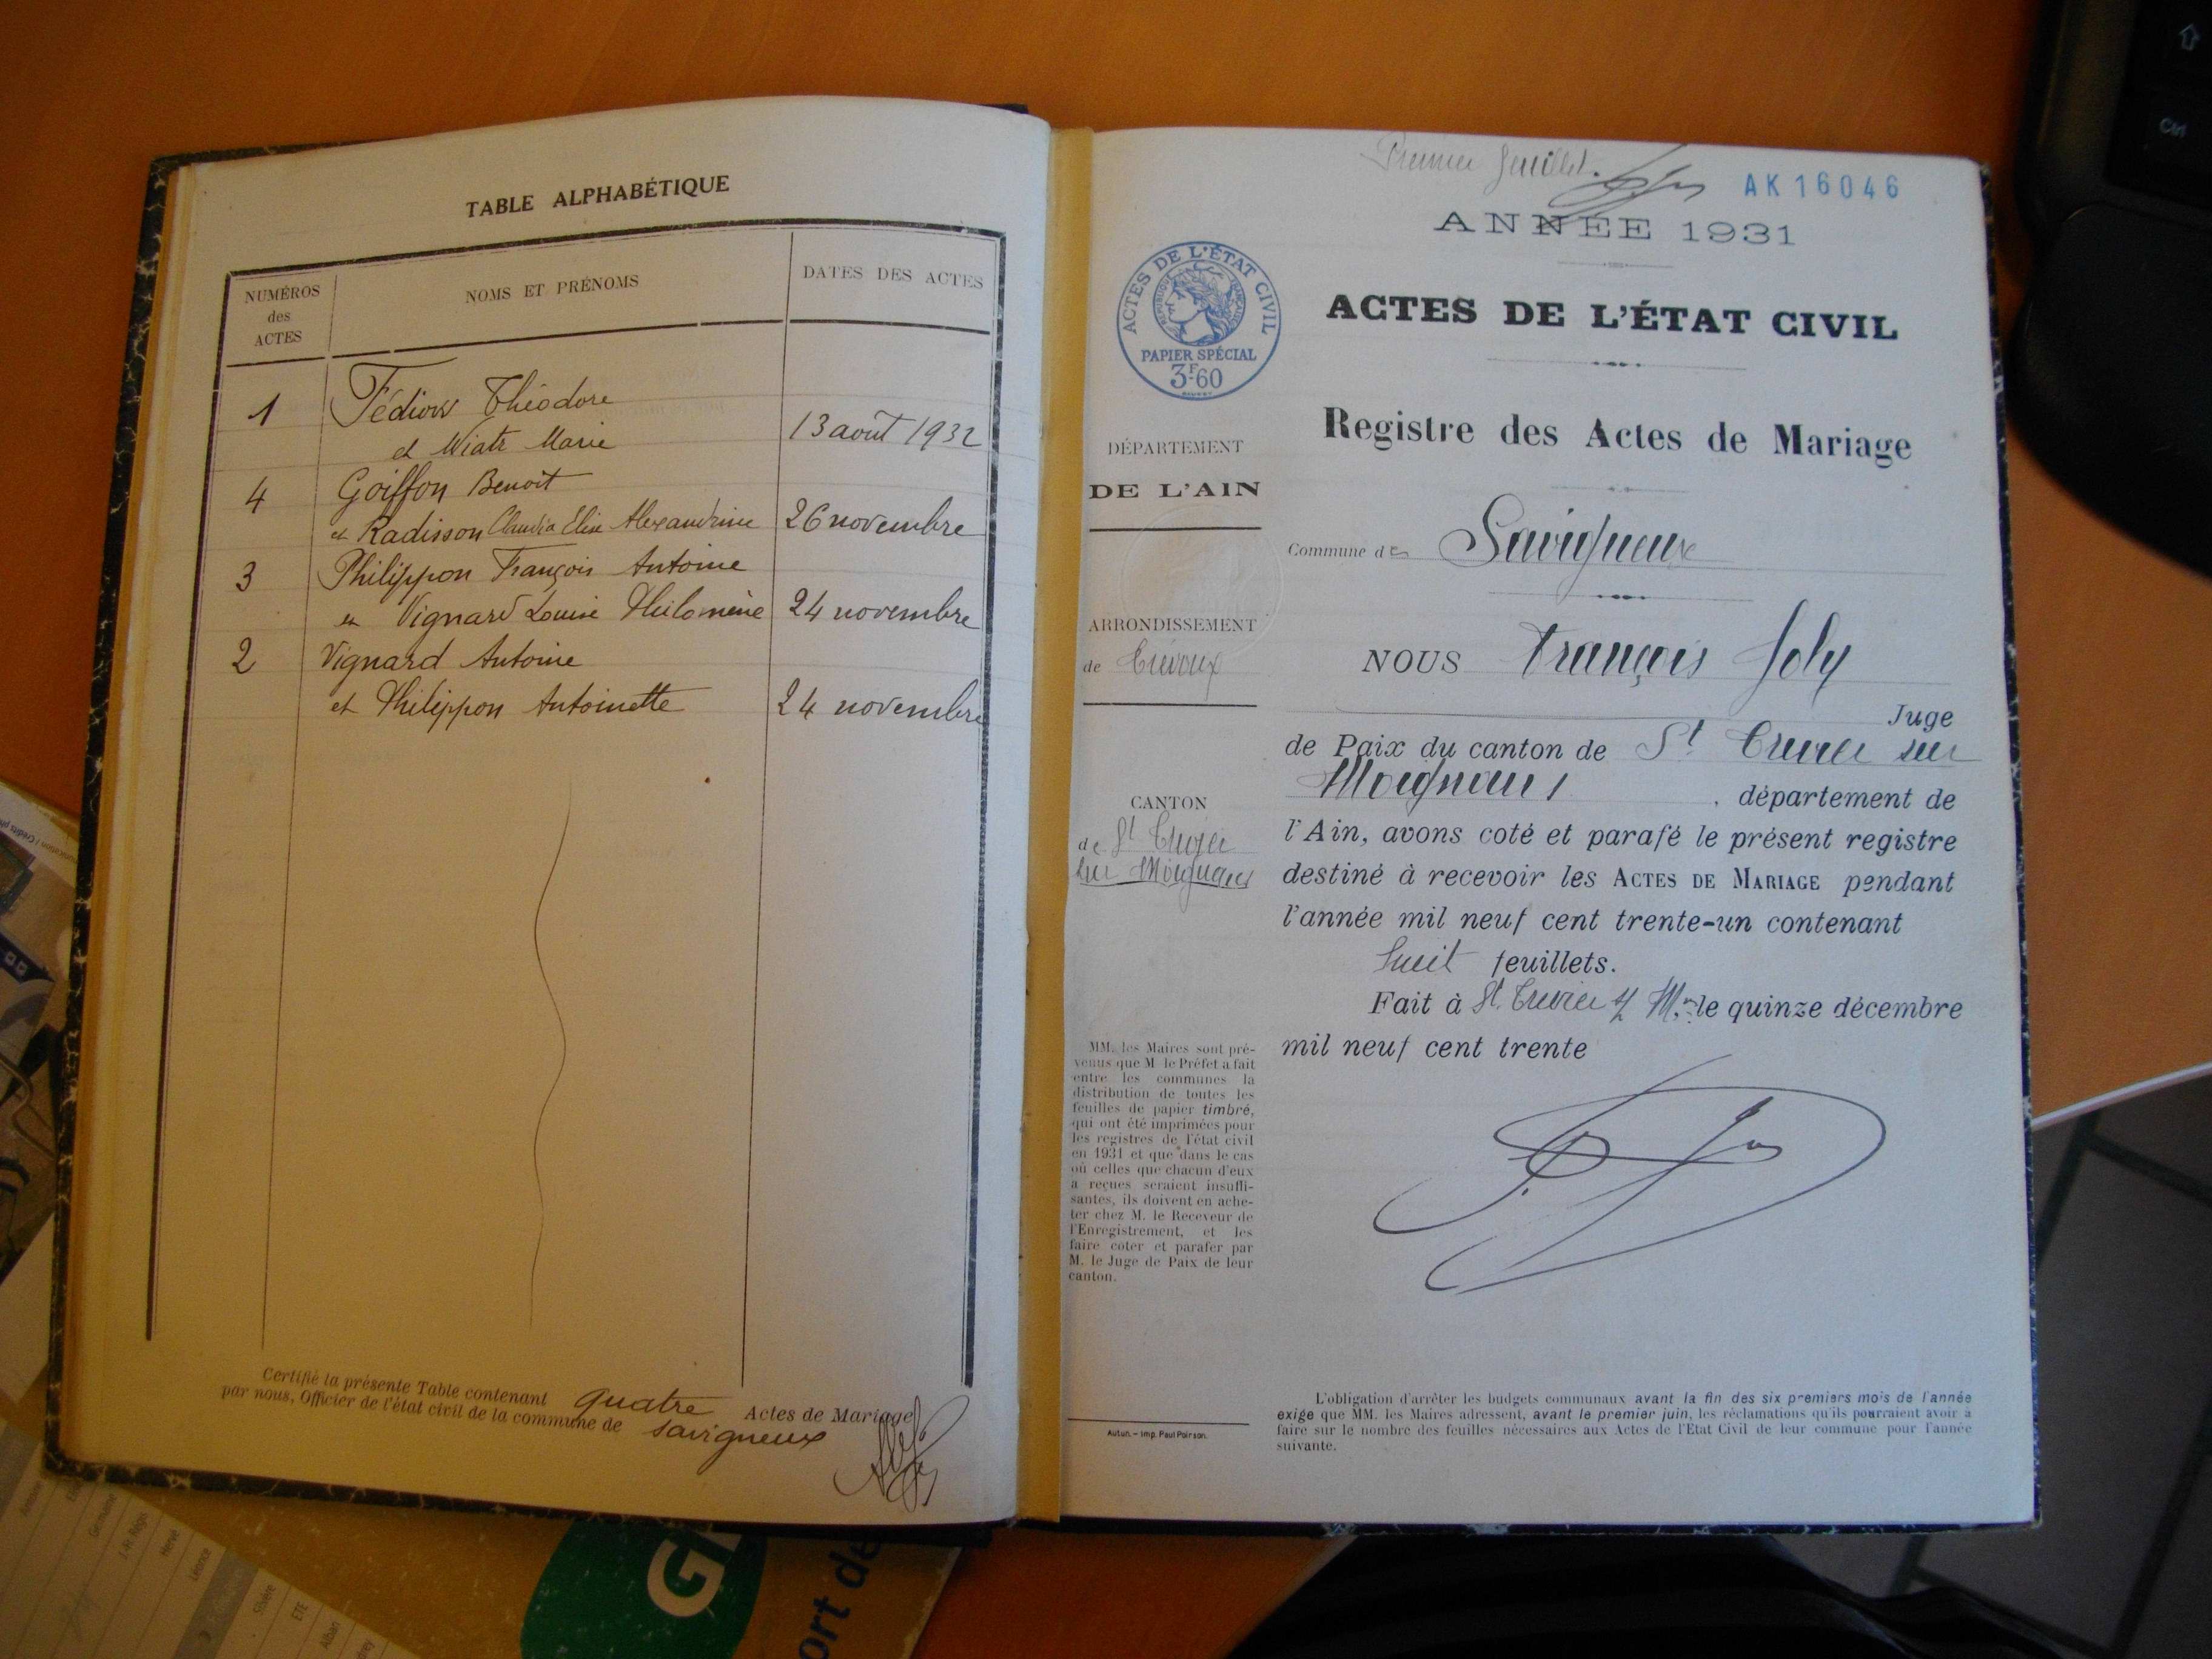 TABLE ALPHABÉTIQUE
NUMÉROS
des
ACTES
NOMS ET PRÉNOMS
DATES DES ACTES
1 Fédiow Théodore
et Wiatr Marie 13 août 1932
4 Goiffon Benoit
et Radisson Claudia Elise Alexandrine 26 novembre
3 Philippon François Antoine
et Vignard Louise Philomène 24 novembre
2 Vignard Antoine
et Philippon Antoinette 24 novembre
Certifié la présente Table contenant quatre Actes de Mariage
par nous, Officier de l'état civil de la commune de Savigneux
Premier feuillet.
AK16046
ANNÉE 1931
ACTES DE L'ÉTAT CIVIL
RÉPUBLIQUE FRANÇAISE
PAPIER SPÉCIAL
3F60
ACTES DE L'ÉTAT CIVIL
Registre des Actes de Mariage
DÉPARTEMENT
DE L'AIN
Commune de Savigneux
ARRONDISSEMENT
de Trévoux
NOUS François Joly
Juge
de Paix du canton de St Trivier sur
Moignans, département de
l'Ain, avons coté et parafé le présent registre
destiné à recevoir les ACTES DE MARIAGE pendant
l'année mil neuf cent trente-un contenant
huit feuillets.
Fait à St. Trivier s/ M. le quinze décembre
mil neuf cent trente
CANTON
de St Trivier
sur Moignans
MM. les Maires sont pré-
venus que M le Préfet a fait
entre les communes la
distribution de toutes les
feuilles de papier timbré,
qui ont été imprimées pour
les registres de l'état civil
en 1931 et que dans le cas
où celles que chacun d'eux
a reçues seraient insuffi-
santes, ils doivent en ache-
ter chez M. le Receveur de
l'Enregistrement, et les
faire coter et parafer par
M. le Juge de Paix de leur
canton.
Autun. – Imp. Paul Poirson.
L'obligation d'arrêter les budgets communaux avant la fin des six premiers mois de l'année
exige que MM. les Maires adressent, avant le premier juin, les réclamations qu'ils pourraient avoir à
faire sur le nombre des feuilles nécessaires aux Actes de l'Etat Civil de leur commune pour l'année
suivante.
Ctrl
ort de